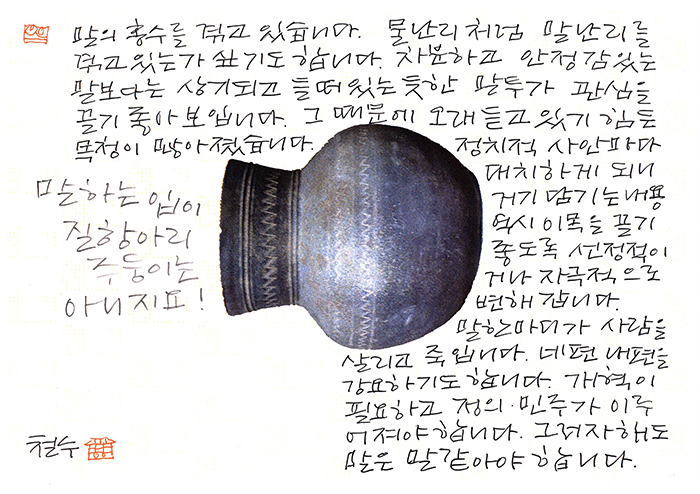 말의 홍수를 겪고 있습니다. 물난리처럼 말난리를
겪고 있는가 싶기도 합니다. 차분하고 안정감 있는
말보다는 상기되고 들떠 있는 듯한 말투가 관심을
끌기 좋아 보입니다. 그 때문에 오래 듣고 있기 힘든
목청이 많아졌습니다.
정치적 사안마다
대치하게 되니
거기 담기는 내용
역시 이목을 끌기
좋도록 선정적이
거나 자극적으로
변해 갑니다.
말한마디가 사람을
살리고 죽입니다. 네편 내편을
강요하기도 합니다. 개혁이
필요하고 정의·민주가 이루
어져야 합니다. 그러자 해도
말은 말같아야 합니다.
말하는 입이
질항아리
주둥이는
아니지요!
철수